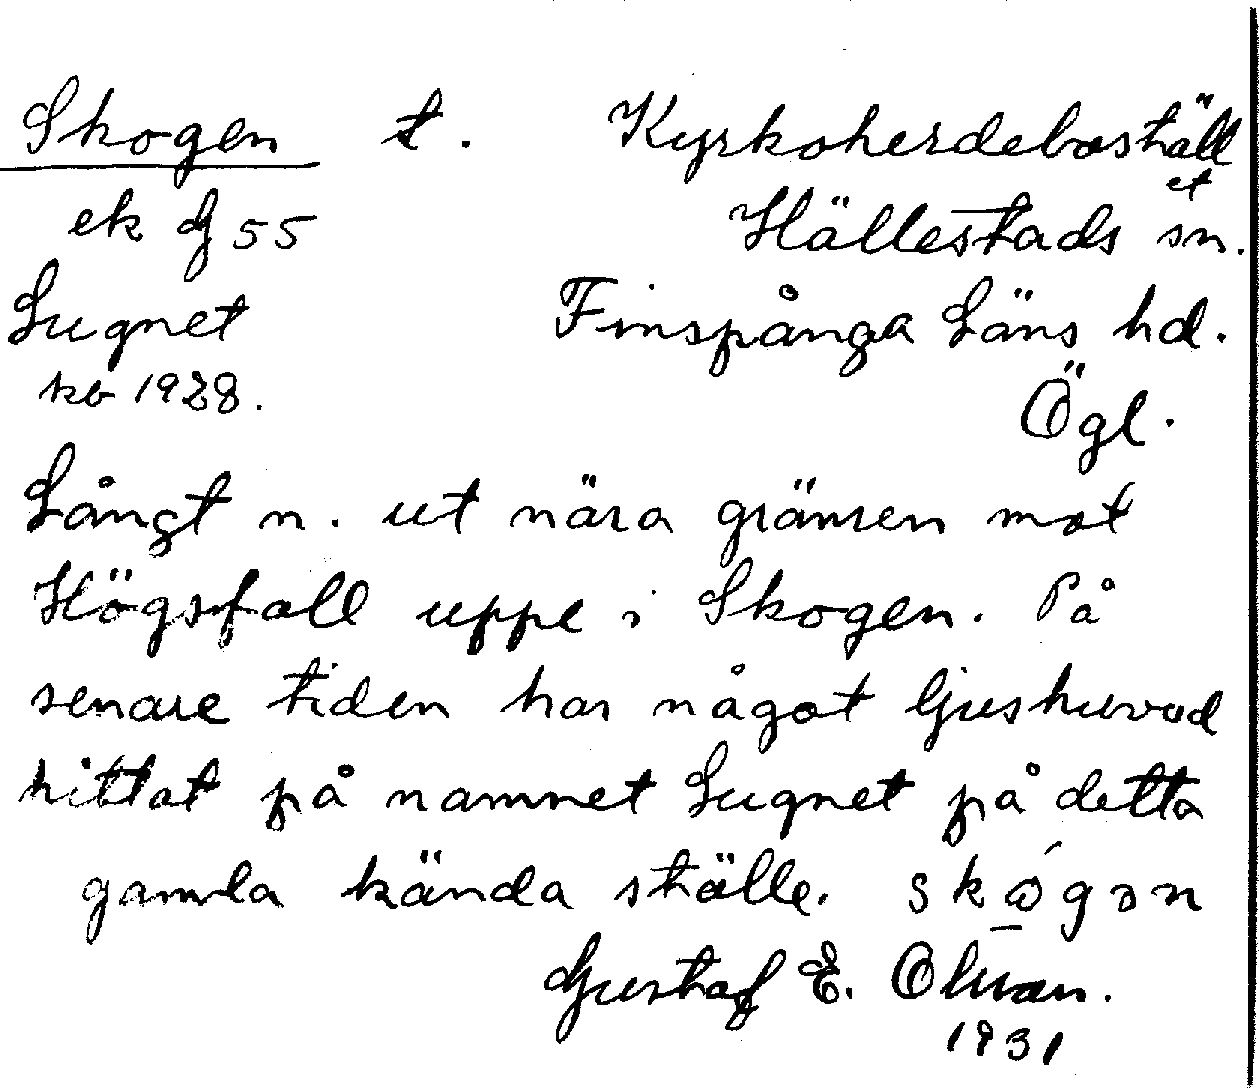 Skogen t. Kyrkoherdeboställ
et
ek df 55 Hällestads sn.
Lugnet Finspånga Läns hd.
kb 1928. Ögl.
Långt n. ut nära gränsen mot
Högsfall uppe i Skogen. På
senare tiden har något ljushuvud
hittat på namnet Lugnet på detta
gamla kända ställe. skógən
Gustaf E. Olsson.
1931